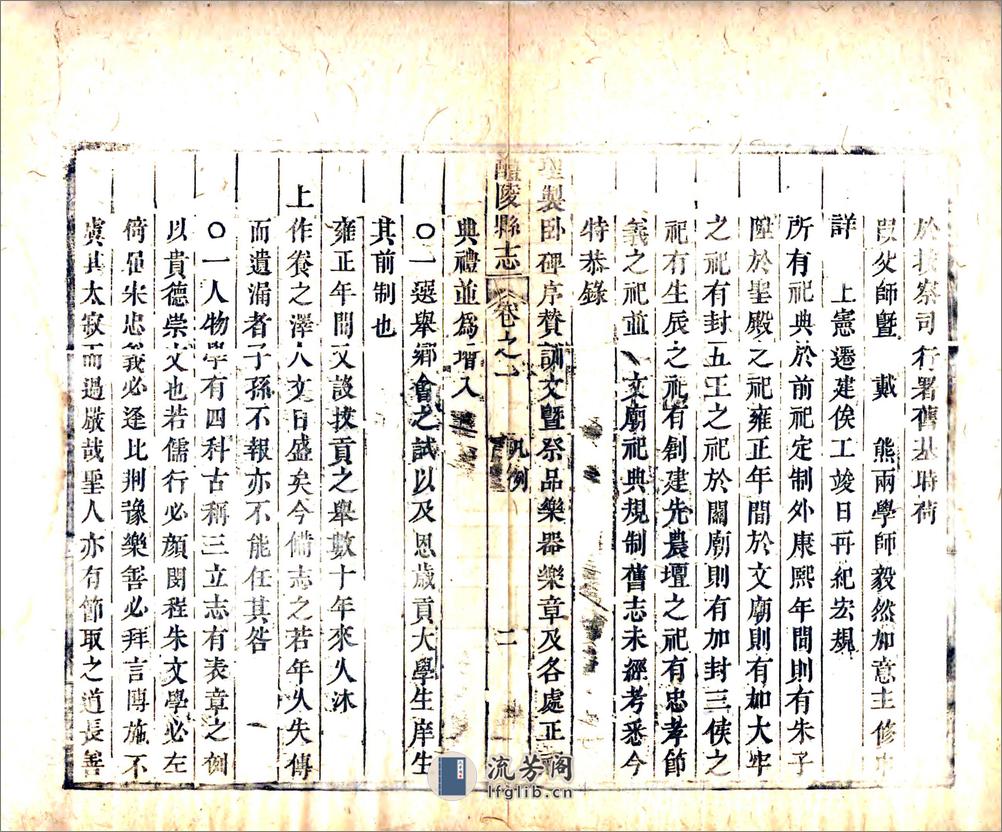 於按察司行署舊基時荷
父師暨　戴　熊兩學師毅然加意主修
詳　上憲遷建俟工竣日再紀宏規
所有祀典於前祀定制外康熙年間則有朱子
陞於聖殿之祀雍正年間於文廟則有加大牢
之祀有封五王之祀於關廟則有加封三侯之
祀有生辰之祀有創建先農壇之祀有忠孝節
義之祀並　文廟祀典規制舊志未經考悉今
特恭錄
聖製臥碑序贊訓文暨祭品樂器樂章及各處正
醴陵縣志　卷之一　凡例　二
典禮並爲增入
〇一選舉鄉會之試以及恩歲貢大學生庠生
其前制也
雍正年間又設拔貢之舉數十年來人沐
上作養之澤人文日盛矣今備志之若年久失傳
而遺漏者子孫不報亦不能任其咎
〇一人物學有四科古稱三立志有表章之例
以貴德崇文也若儒行必顏閔程朱文學必左
倚屈宋忠義必逢比荆豫樂善必拜言博施不
虞其太寂而過嚴哉聖人亦有節取之道長善
流芳阁
lfglib.cn